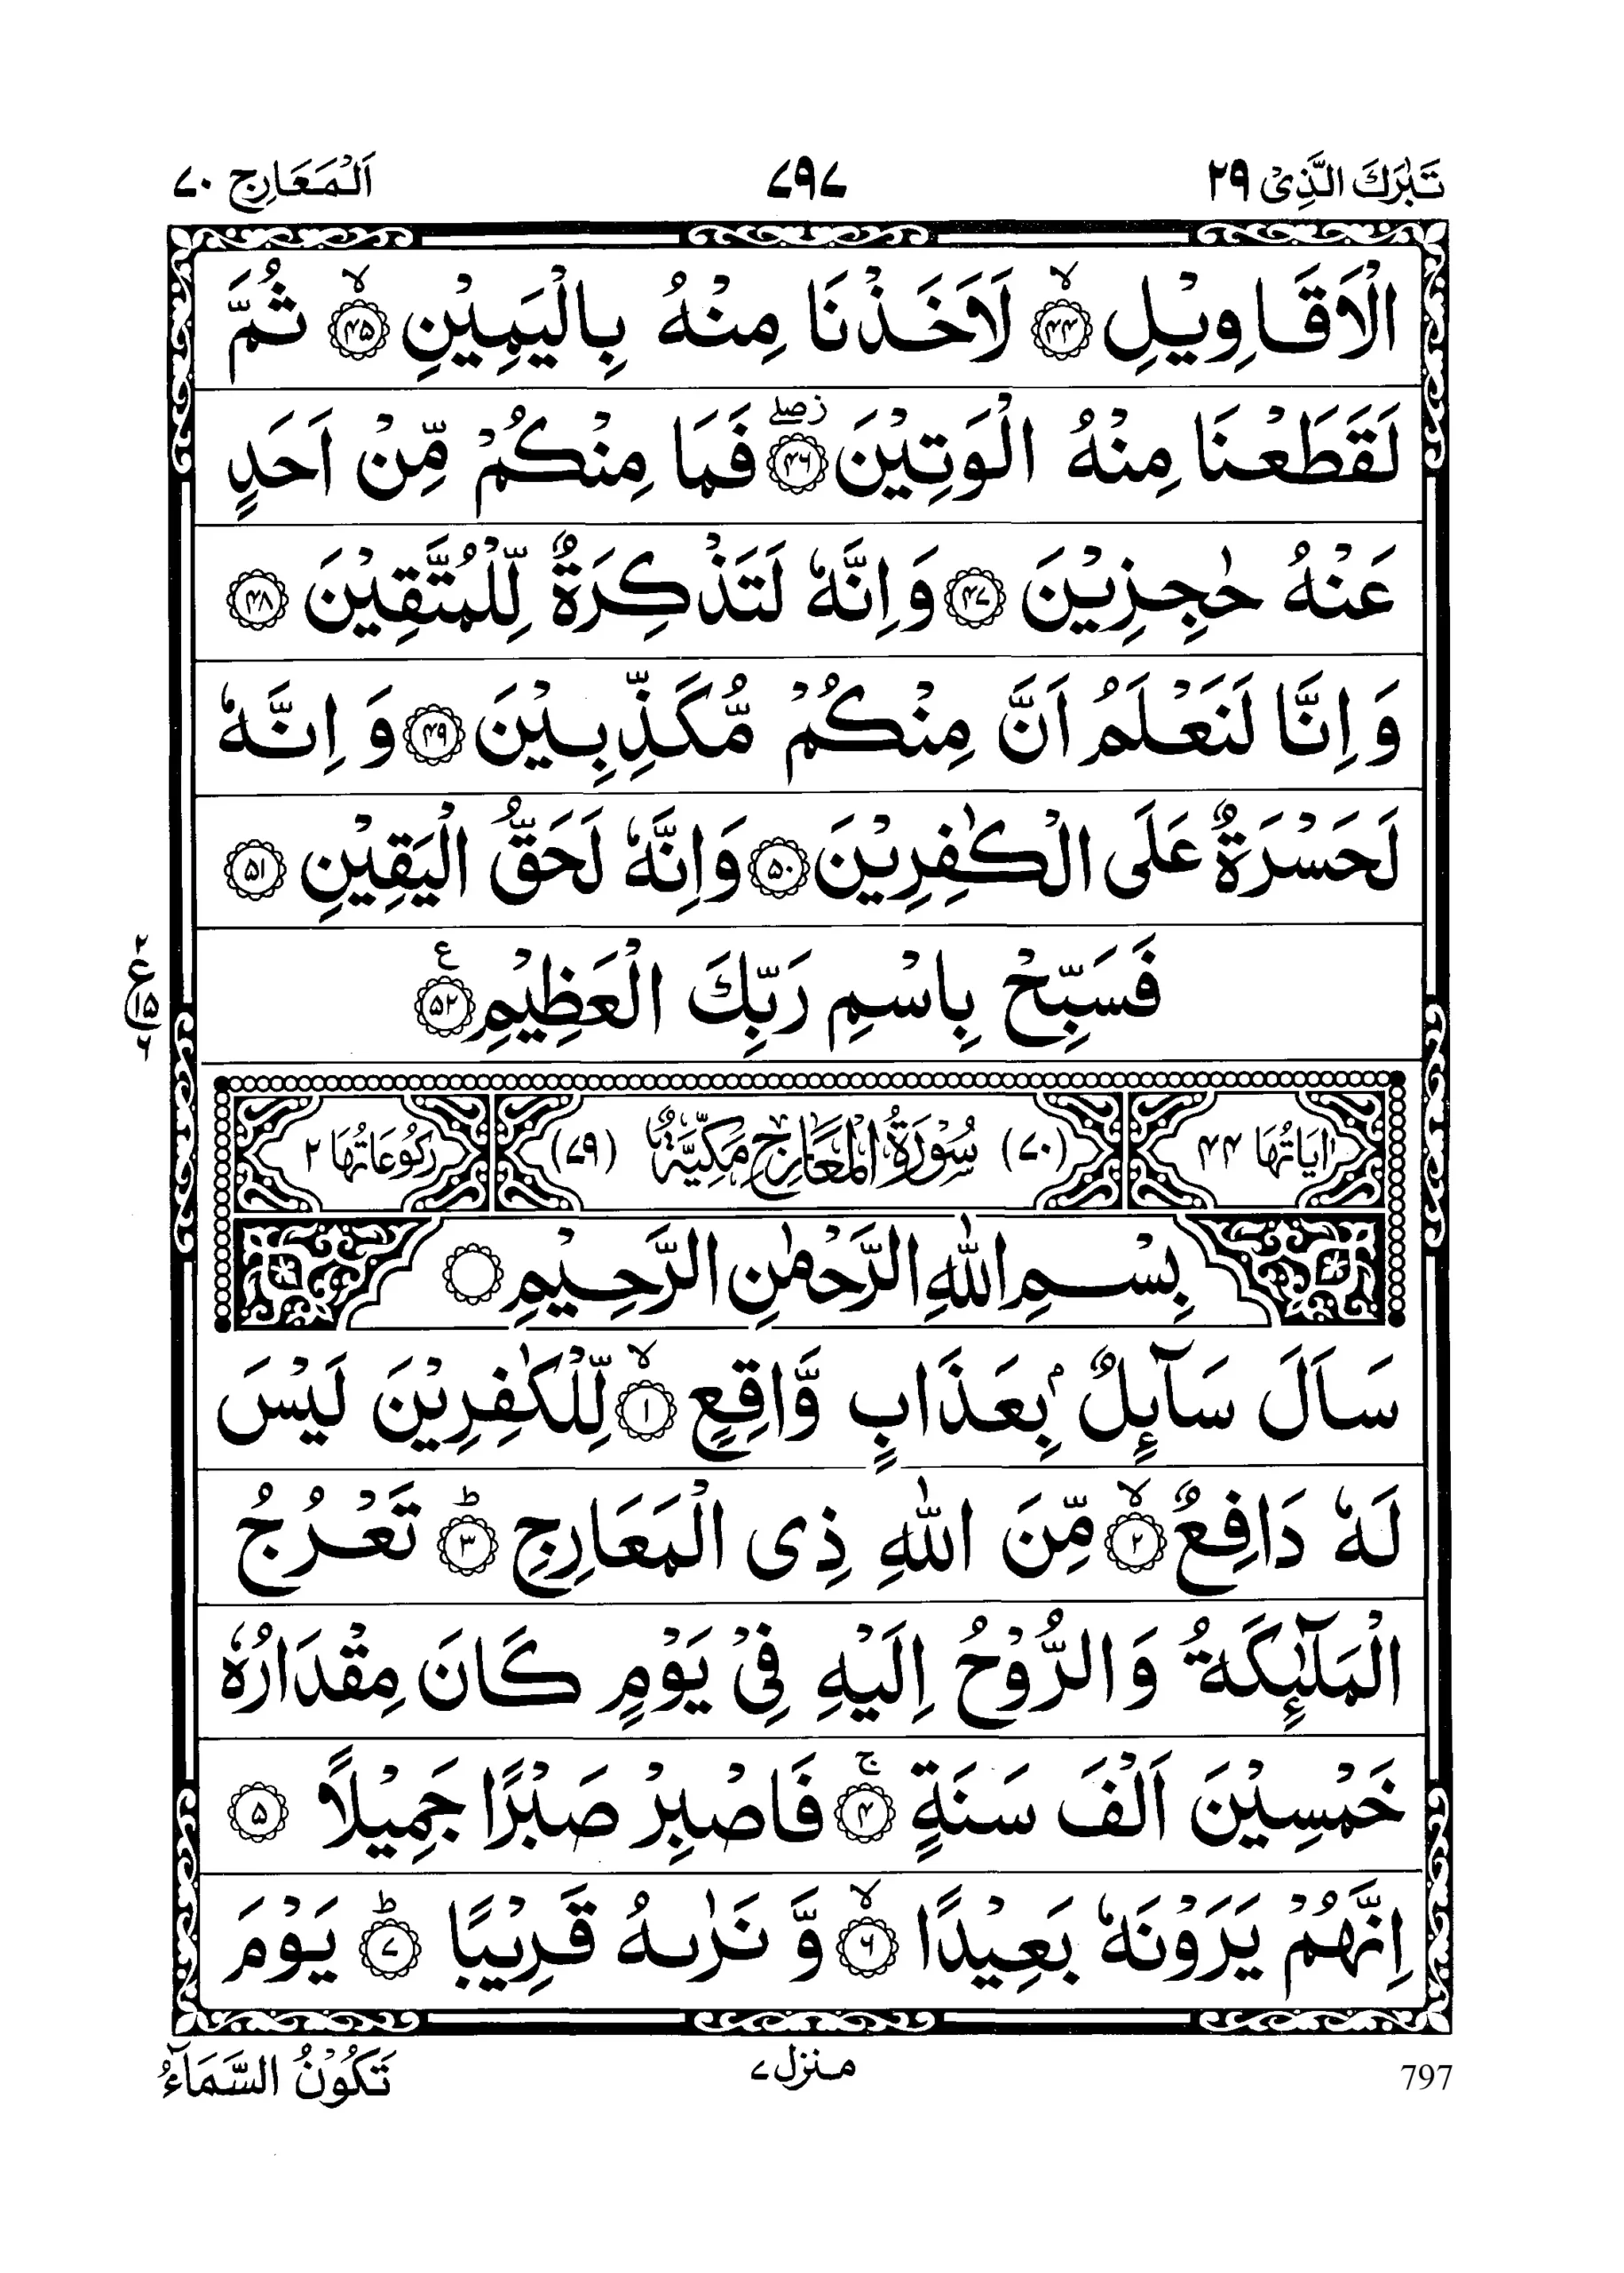 تَبٰرَكَ الَّذِىْ ٢٩
٧٩٧
اَلْمَعَارِج ٧٠
الْاَقَاوِيْلِ ۙ﴿۴۴﴾ لَاَخَذْنَا مِنْهُ بِالْيَمِيْنِ ۙ﴿۴۵﴾ ثُمَّ
لَقَطَعْنَا مِنْهُ الْوَتِيْنَ ﴿۴۶﴾ زصلے فَمَا مِنْكُمْ مِّنْ اَحَدٍ
عَنْهُ حٰجِزِيْنَ ﴿۴۷﴾ وَاِنَّهٗ لَتَذْكِرَةٌ لِّلْمُتَّقِيْنَ ﴿۴۸﴾
وَاِنَّا لَنَعْلَمُ اَنَّ مِنْكُمْ مُّكَذِّبِيْنَ ﴿۴۹﴾ وَاِنَّهٗ
لَحَسْرَةٌ عَلَى الْكٰفِرِيْنَ ﴿۵۰﴾ وَاِنَّهٗ لَحَقُّ الْيَقِيْنِ ﴿۵۱﴾
فَسَبِّحْ بِاسْمِ رَبِّكَ الْعَظِيْمِ ﴿۵۲﴾ ع
٢ ع ١۵ ۶
اٰيَاتُهَا ۴۴ (٧٠) سُوْرَةُ الْمَعَارِجِ مَكِّيَّةٌ (٧٩) رُكُوْعَاتُهَا ٢
بِسْمِ اللّٰهِ الرَّحْمٰنِ الرَّحِيْمِ
سَاَلَ سَآئِلٌۢ بِعَذَابٍ وَّاقِعٍ ۙ﴿۱﴾ لِّلْكٰفِرِيْنَ لَيْسَ
لَهٗ دَافِعٌ ۙ﴿۲﴾ مِّنَ اللّٰهِ ذِى الْمَعَارِجِ ؕ﴿۳﴾ تَعْرُجُ
الْمَلٰٓئِكَةُ وَالرُّوْحُ اِلَيْهِ فِىْ يَوْمٍ كَانَ مِقْدَارُهٗ
خَمْسِيْنَ اَلْفَ سَنَةٍ ۚ﴿۴﴾ فَاصْبِرْ صَبْرًا جَمِيْلًا ﴿۵﴾
اِنَّهُمْ يَرَوْنَهٗ بَعِيْدًا ۙ﴿۶﴾ وَّنَرٰىهُ قَرِيْبًا ؕ﴿۷﴾ يَوْمَ
تَكُوْنُ السَّمَآءُ
منزل ٧
797